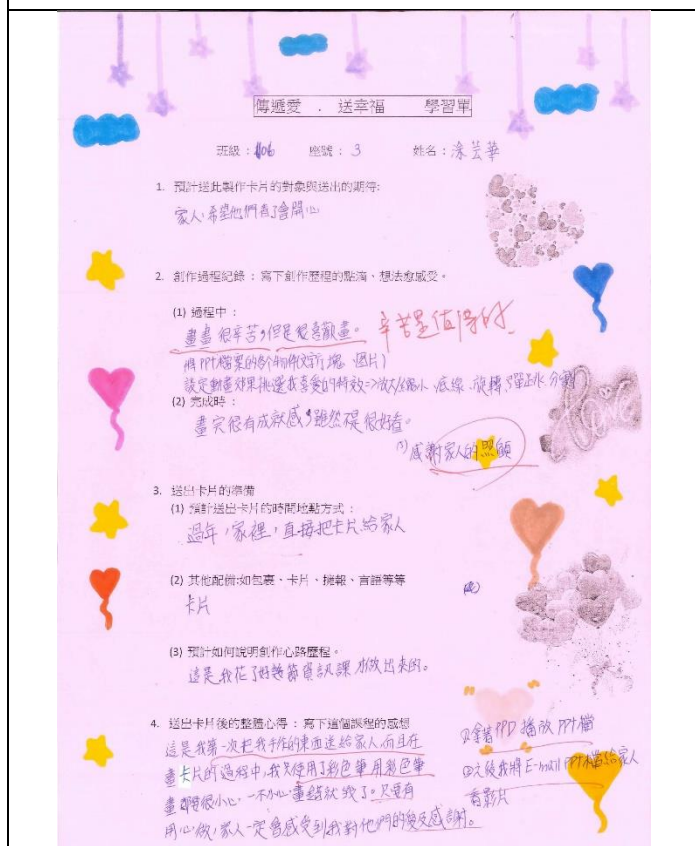 傳遞愛 . 送幸福 學習單
班級：106 座號：3 姓名：涂芸華
1. 預計送此製作卡片的對象與送出的期待:
家人,希望他們看了會開心
2. 創作過程紀錄：寫下創作歷程的點滴、想法愈感受。
(1) 過程中：
畫畫很辛苦,但是很喜歡畫。 辛苦是值得的
將PPT檔案的各個物件(文字方塊、圖片)
設定動畫效果挑選我喜愛的特效=>放大/縮小、底線、旋轉、彈跳、分割
(2) 完成時：
畫完很有成就感,雖然不是很好看。
(3)感謝家人的照顧
3. 送出卡片的準備
(1) 預計送出卡片的時間地點方式：
過年,家裡,直接把卡片給家人
(2) 其他配備:如包裹、卡片、擁報、言語等等
卡片
(3) 預計如何說明創作心路歷程。
這是我花了好幾節資訊課才做出來的。
4. 送出卡片後的整體心得：寫下這個課程的感想
這是我第一次把我手作的東西送給家人,而且在
畫卡片的過程中,我只使用了彩色筆,用彩色筆
畫要很小心,一不小心畫錯就毀了。只要有
用心做,家人一定會感受到我對他們的愛及感謝。
①拿著PPD 播放 PPT檔
②之後我將 E-mail PPT檔給家人
看影片